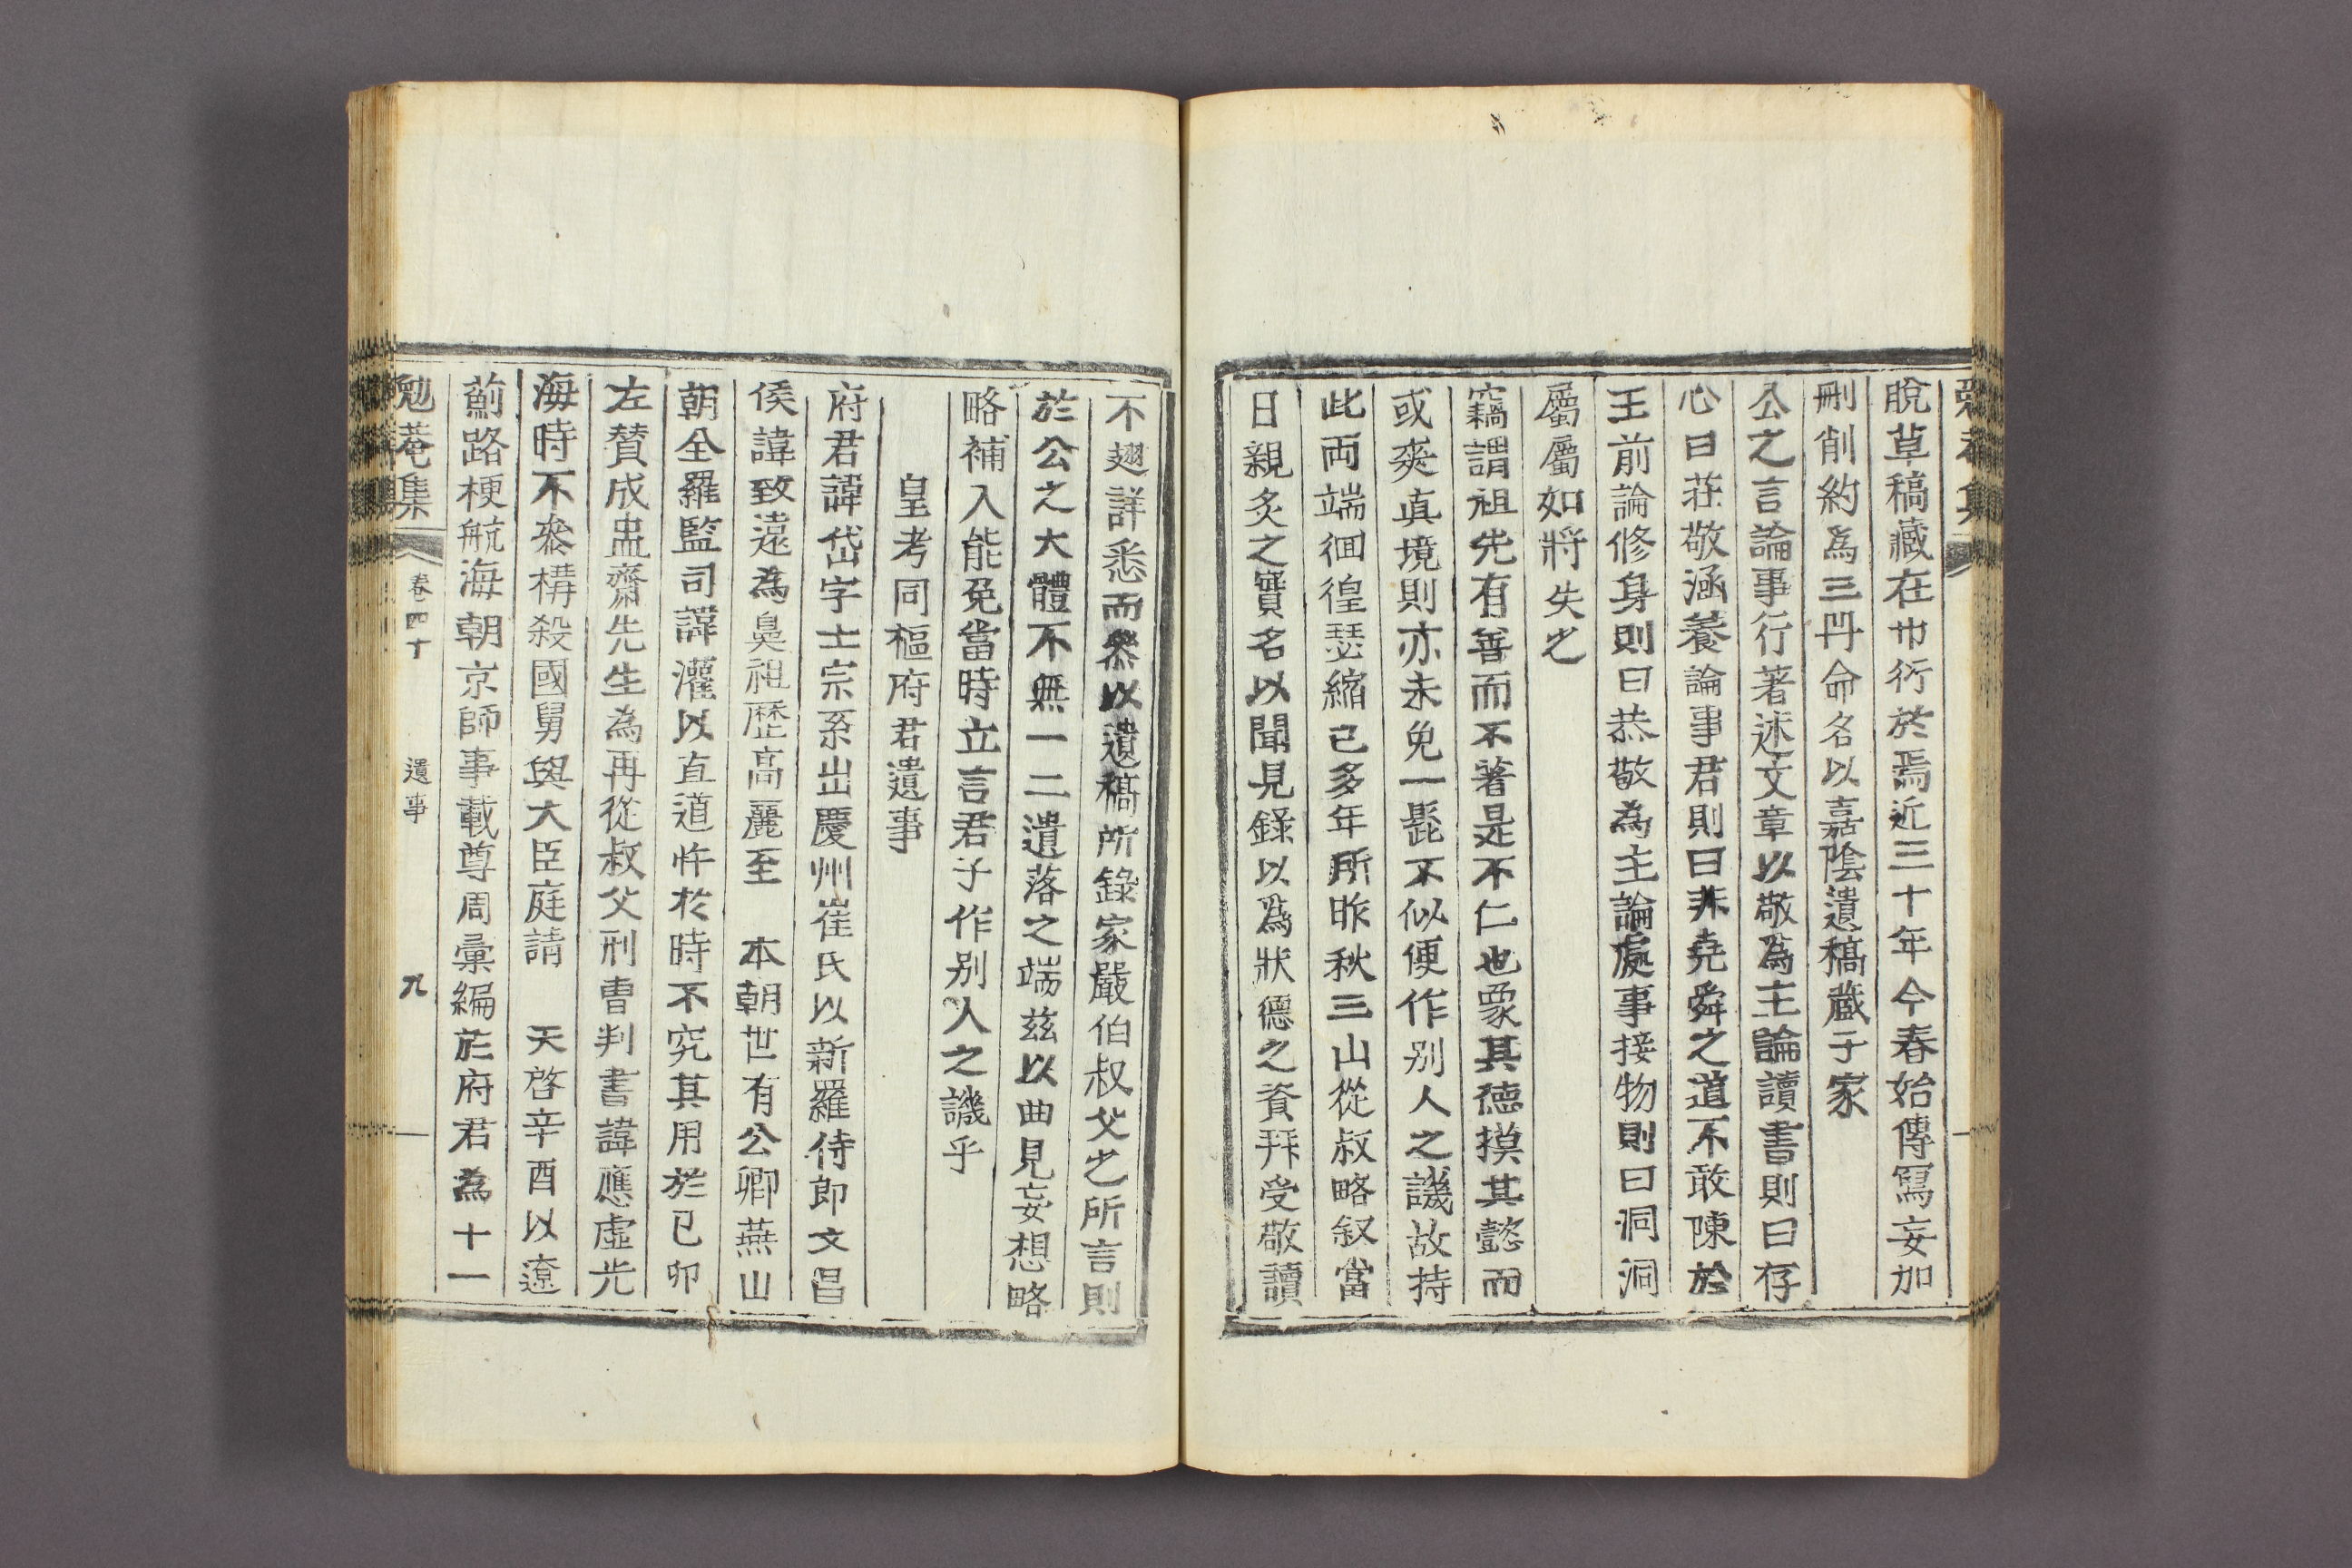 勉菴集
脫草稿藏在巾衍於焉近三十年今春始傳寫妄加
刪削約爲三冊命名以嘉陰遺稿藏于家
公之言論事行著述文章以敬爲主論讀書則曰存
心曰莊敬涵養論事君則曰非堯舜之道不敢陳於
王前論修身則曰恭敬為主論處事接物則曰洞洞
屬屬如將失之
竊謂祖先有善而不著是不仁也彖其德摸其懿而
或爽真境則亦未免一髭不似便作別人之譏故持
此両端徊徨瑟縮已多年所昨秋三山從叔略叙當
日親炙之實名以聞見錄以爲狀德之資拜受敬讀
不翅詳悉而叅以遺稿所錄家嚴伯叔父之所言則
於公之大體不無一二遺落之端茲以曲見妄想略
略補入能免當時立言君子作別人之譏乎
皇考同樞府君遺事
府君諱岱字士宗系出慶州崔氏以新羅侍郎文昌
侯諱致遠為鼻祖歷高麗至 本朝世有公卿燕山
朝全羅監司諱灌以直道忤於時不究其用於己卯
左贊成盅齋先生為再從叔父刑曹判書諱應虛光
海時不叅構殺國舅與大臣庭請 天啓辛酉以遼
薊路梗航海朝京師事載尊周彙編於府君為十一
勉菴集 卷四十 遺事 九